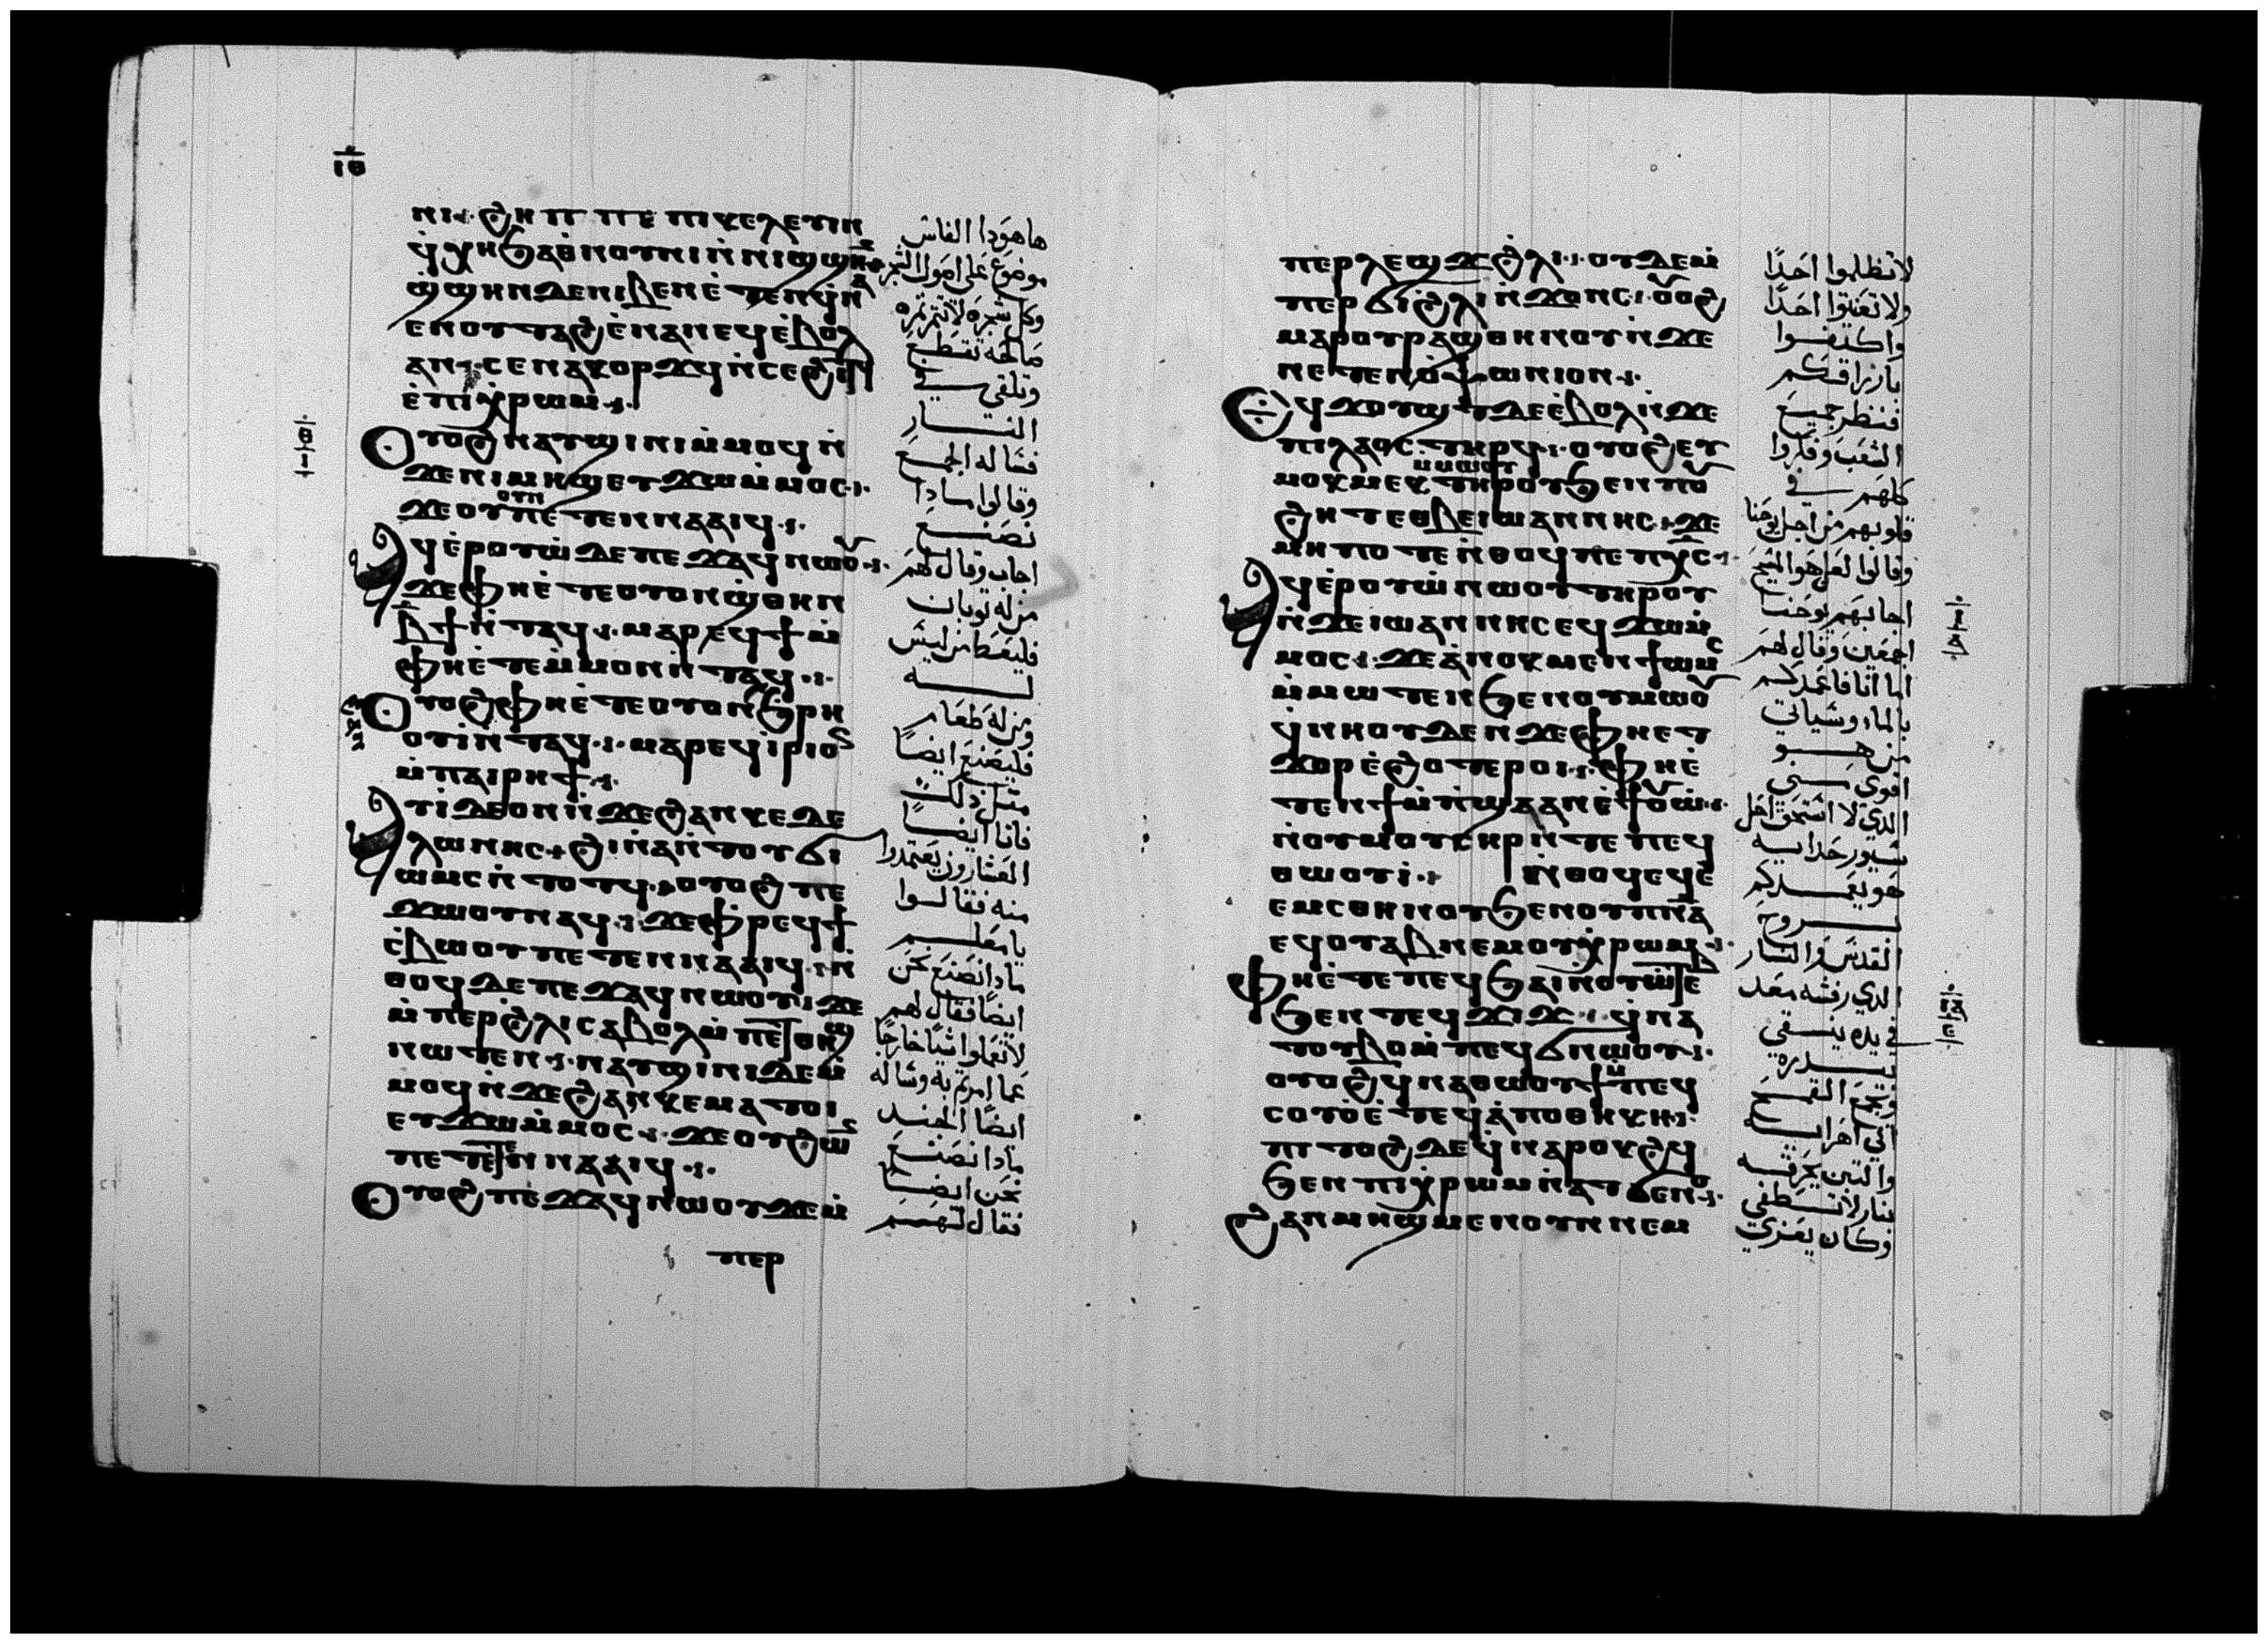 ⲓⲑ
ⲛⲓ · ϩⲏⲡⲡⲉ ⲡⲓⲕⲉⲗⲉⲃⲓⲛ
ϥ̀ⲭⲏ ϧⲁⲑⲛⲟⲩⲛⲓ ⲛ̀ⲛⲓϣϣⲏⲛ
ϣ̀ϣⲏⲛ ⲇⲉ ⲛⲓⲃⲉⲛ ⲉ̀ⲧⲉⲛϥ̀ⲛⲁ
ⲉⲛⲟⲩⲧⲁϩ ⲉ̀ⲛⲁⲛⲉϥ ⲉ̀ⲃⲟⲗ
ⲁⲛ · ⲥⲉⲛⲁⲕⲟⲣϫϥ ⲛ̀ⲥⲉϩⲓⲧϥ
ⲉ̀ⲡⲓⲭ̀ⲣⲱⲙ ·
Ⲟⲩⲟϩ ⲛⲁⲩϣⲓⲛⲓ ⲙ̀ⲙⲟϥ ⲛ̀
ϫⲉ ⲛⲓⲙⲏϣ ⲉⲩϫⲱ ⲙ̀ⲙⲟⲥ ·
ϫⲉ ⲟⲩ ⲟⲩⲛ ⲡⲉⲧⲉⲛⲛⲁⲁⲓϥ ·
Ⲁϥⲉ̀ⲣⲟⲩⲱ̀ ⲇⲉ ⲡⲉϫⲁϥ ⲛⲱⲟⲩ ·
ϫⲉ ⲫⲏ ⲉ̀ⲧⲉ ⲟⲩⲟⲛ ϣ̀ⲑⲏⲛ
ⲃ̄ϯ ⲛ̀ⲧⲁϥ · ⲙⲁⲣⲉϥϯ ⲙ̀
ⲫⲏ ⲉ̀ⲧⲉ ⲙ̀ⲙⲟⲛ ⲛ̀ⲧⲁϥ ·
Ⲟⲩⲟϩ ⲫⲏ ⲉ̀ⲧⲉ ⲟⲩⲟⲛ ϧ̀ⲣⲏ
ⲟⲩⲓ̀ ⲛ̀ⲧⲁϥ · ⲙⲁⲣⲉϥⲓ̀ⲣⲓ ⲟⲥ
ⲙ̀ⲡⲁⲓⲣⲏϯ ·
Ⲁⲩⲓ̀ ⲇⲉ ⲟⲛ ⲛ̀ϫⲉ ϩⲁⲛⲕⲉⲧⲉ
ⲗⲱⲛⲏⲥ · ϩⲓⲛⲁ ⲛ̀ⲧⲟⲩϭⲓ
ⲱⲙⲥ ⲛ̀ⲧⲟⲧϥ · ⲟⲩⲟϩ ⲡⲉ
ϫⲱⲟⲩ ⲛⲁϥ · ϫⲉ ⲫ̀ⲣⲉϥϯ
ⲥ̀ⲃⲱ ⲟⲩ ⲡⲉⲧⲉⲛⲛⲁⲁⲓϥ · ⲛ̀
ⲑⲟϥ ⲇⲉ ⲡⲉϫⲁϥ ⲛⲱⲟⲩ · ϫⲉ
ⲙ̀ⲡⲉⲣ ϩⲗⲓ ⲥⲁⲃⲟⲗ ⲙ̀ⲡⲉⲧⲑⲏϣ
ⲛⲱⲧⲉⲛ · ⲛⲁⲩϣⲓⲛⲓ ⲇⲉ ⲙ̀
ⲙⲟϥ ⲛ̀ϫⲉ ϩⲁⲛⲕⲉⲙⲁⲧⲟⲓ
ⲉⲩϫⲱ ⲙ̀ⲙⲟⲥ · ϫⲉ ⲟⲩ ϩⲱⲛ
ⲡⲉⲧⲉⲛⲛⲁⲁⲓϥ ·
Ⲟⲩⲟϩ ⲡⲉϫⲁϥ ⲛⲱⲟⲩ ϫⲉ ⲙ̀
ⲡⲉⲣ
هاهوذا الفاس
موضوع على اصول الشجر
وكل شجره لا تثمر ثمره
صالحه تقطع
وتلقى في
النار
فساله الجمع
وقالوا ماذا
نصنع
اجاب وقال لهم
من له ثوبان
فليعط من ليس
له
ومن له طعام
فليصنع ايضًا
مثل ذلك
فاتا ايضًا
العشارون يعتمدوا
منه فقالوا
يا معلم
ماذا نصنع نحن
ايضًا فقال لهم
لا تعملوا شيًا خارجًا
عما امرتم به وساله
ايضًا الجند
ماذا نصنع
نحن ايضًا
فقال لهم
ⲡⲉⲣⲗⲉϣϫ ϩ̀ⲗⲓ · ⲟⲩⲇⲉ ⲙ̀
ⲡⲉⲣϭⲓ ϩ̀ⲗⲓ ⲛ̀ϫⲟⲛⲥ · ⲟⲩⲟϩ
ⲙⲁⲣⲟⲩⲣⲁϣ ⲑⲏⲛⲟⲩ ⲛ̀ϫⲉ
ⲛⲉⲧⲉⲛⲟ̀ⲯⲱⲛⲓⲟⲛ ·
Ⲉϥϫⲟⲩϣⲧ ⲇⲉ ⲉ̀ⲃⲟⲗ ⲛ̀ϫⲉ
ⲡⲓⲗⲁⲟⲥ ⲧⲏⲣϥ · ⲟⲩⲟϩ ⲉⲩ
ⲙⲟⲕⲙⲉⲕ ⲙ̀ⲙⲱⲟⲩ ⲧⲏⲣⲟⲩ ϧⲉⲛ ⲡⲟⲩ
ϩⲏⲧ ⲉⲑⲃⲉ ⲓⲱⲁⲛⲛⲏⲥ · ϫⲉ
ⲙⲏⲡⲟⲧⲉ ⲛ̀ⲑⲟϥ ⲡⲉ ⲡⲭ̅ⲥ̅ ·
Ⲁϥⲉ̀ⲣⲟⲩⲱ̀ ⲛⲱⲟⲩ ⲧⲏⲣⲟⲩ
ⲛ̀ϫⲉ ⲓⲱⲁⲛⲛⲏⲥ ⲉϥϫⲱ ⲙ̀
ⲙⲟⲥ · ϫⲉ ⲁ̀ⲛⲟⲕ ⲙⲉⲛ ϯⲱⲙⲥ
ⲙ̀ⲙⲱⲧⲉⲛ ϧⲉⲛ ⲟⲩⲙⲱⲟⲩ
ϥ̀ⲛⲏⲟⲩ ⲇⲉ ⲛ̀ϫⲉ ⲫⲏ ⲉⲧ
ϫⲟⲣ ⲉ̀ϩⲟⲧⲉⲣⲟⲓ · ⲫⲏ ⲉ̀
ⲧⲉⲛϯⲙ̀ⲡ̀ϣⲁ ⲁⲛ ⲉ̀ϯⲟⲩⲱ̀ ·
ⲛ̀ⲟⲩⲙⲟⲩⲥⲏⲣ ⲛ̀ⲧⲉ ⲡⲉϥ
ⲑⲱⲟⲩⲓ̀ · ⲛ̀ⲑⲟϥ ⲉϥⲉ̀
ⲉⲙⲥ ⲑⲏⲛⲟⲩ ϧⲉⲛ ⲟⲩⲡ̅ⲛ̅ⲁ̅
ⲉϥⲟⲩⲁⲃ ⲛⲉⲙ ⲟⲩⲭ̀ⲣⲱⲙ ·
Ⲫⲏ ⲉ̀ⲧⲉ ⲡⲉϥϧⲁⲓ ⲛ̀ⲟⲩⲱⲧⲉⲃ
ϧⲉⲛ ⲧⲉϥϫⲓϫ · ϥ̀ⲛⲁ
ⲧⲟⲩⲃⲟ ⲙ̀ⲡⲉϥϭⲛⲱⲟⲩ ·
ⲟⲩⲟϩ ϥⲛⲁⲑⲱⲟⲩϯ ⲙ̀ⲡⲉϥ
ⲥⲟⲩⲟ̀ ⲉ̀ⲧⲉϥⲁ̀ⲡⲟⲑⲏⲕⲏ ·
ⲡⲓⲧⲟϩ ⲇⲉ ϥ̀ⲛⲁⲣⲟⲕϩϥ
ϧⲉⲛ ⲡⲓⲭ̀ⲣⲱⲙ ⲛ̀ⲁⲧϭⲉⲛⲟ ·
Ϩⲁⲛⲙⲏϣ ⲙⲉⲛ ⲟⲩⲛ ⲛⲉⲙ
لا تظلموا احدًا
ولا تعنتوا احدًا
واكتفوا
بارزاقكم
فنظر جميع
الشعب وفكروا
كلهم في
قلوبهم من اجل يوحنا
وقالوا لعل هو المسيح
اجابهم يوحنا
اجمعين وقال لهم
اما انا فاعمدكم
بالماء وسياتي
من هو
اقوى مني
الذي لا استحق احل
سيور حذايه
هو يعمدكم
بروح
القدس والنار
الذي رفشه معد
في يده ينقي
بيدره
ويجمع القمح
الى اهرايه
والتبن يحرقه
بنار لا تطفى
وكان يعزي